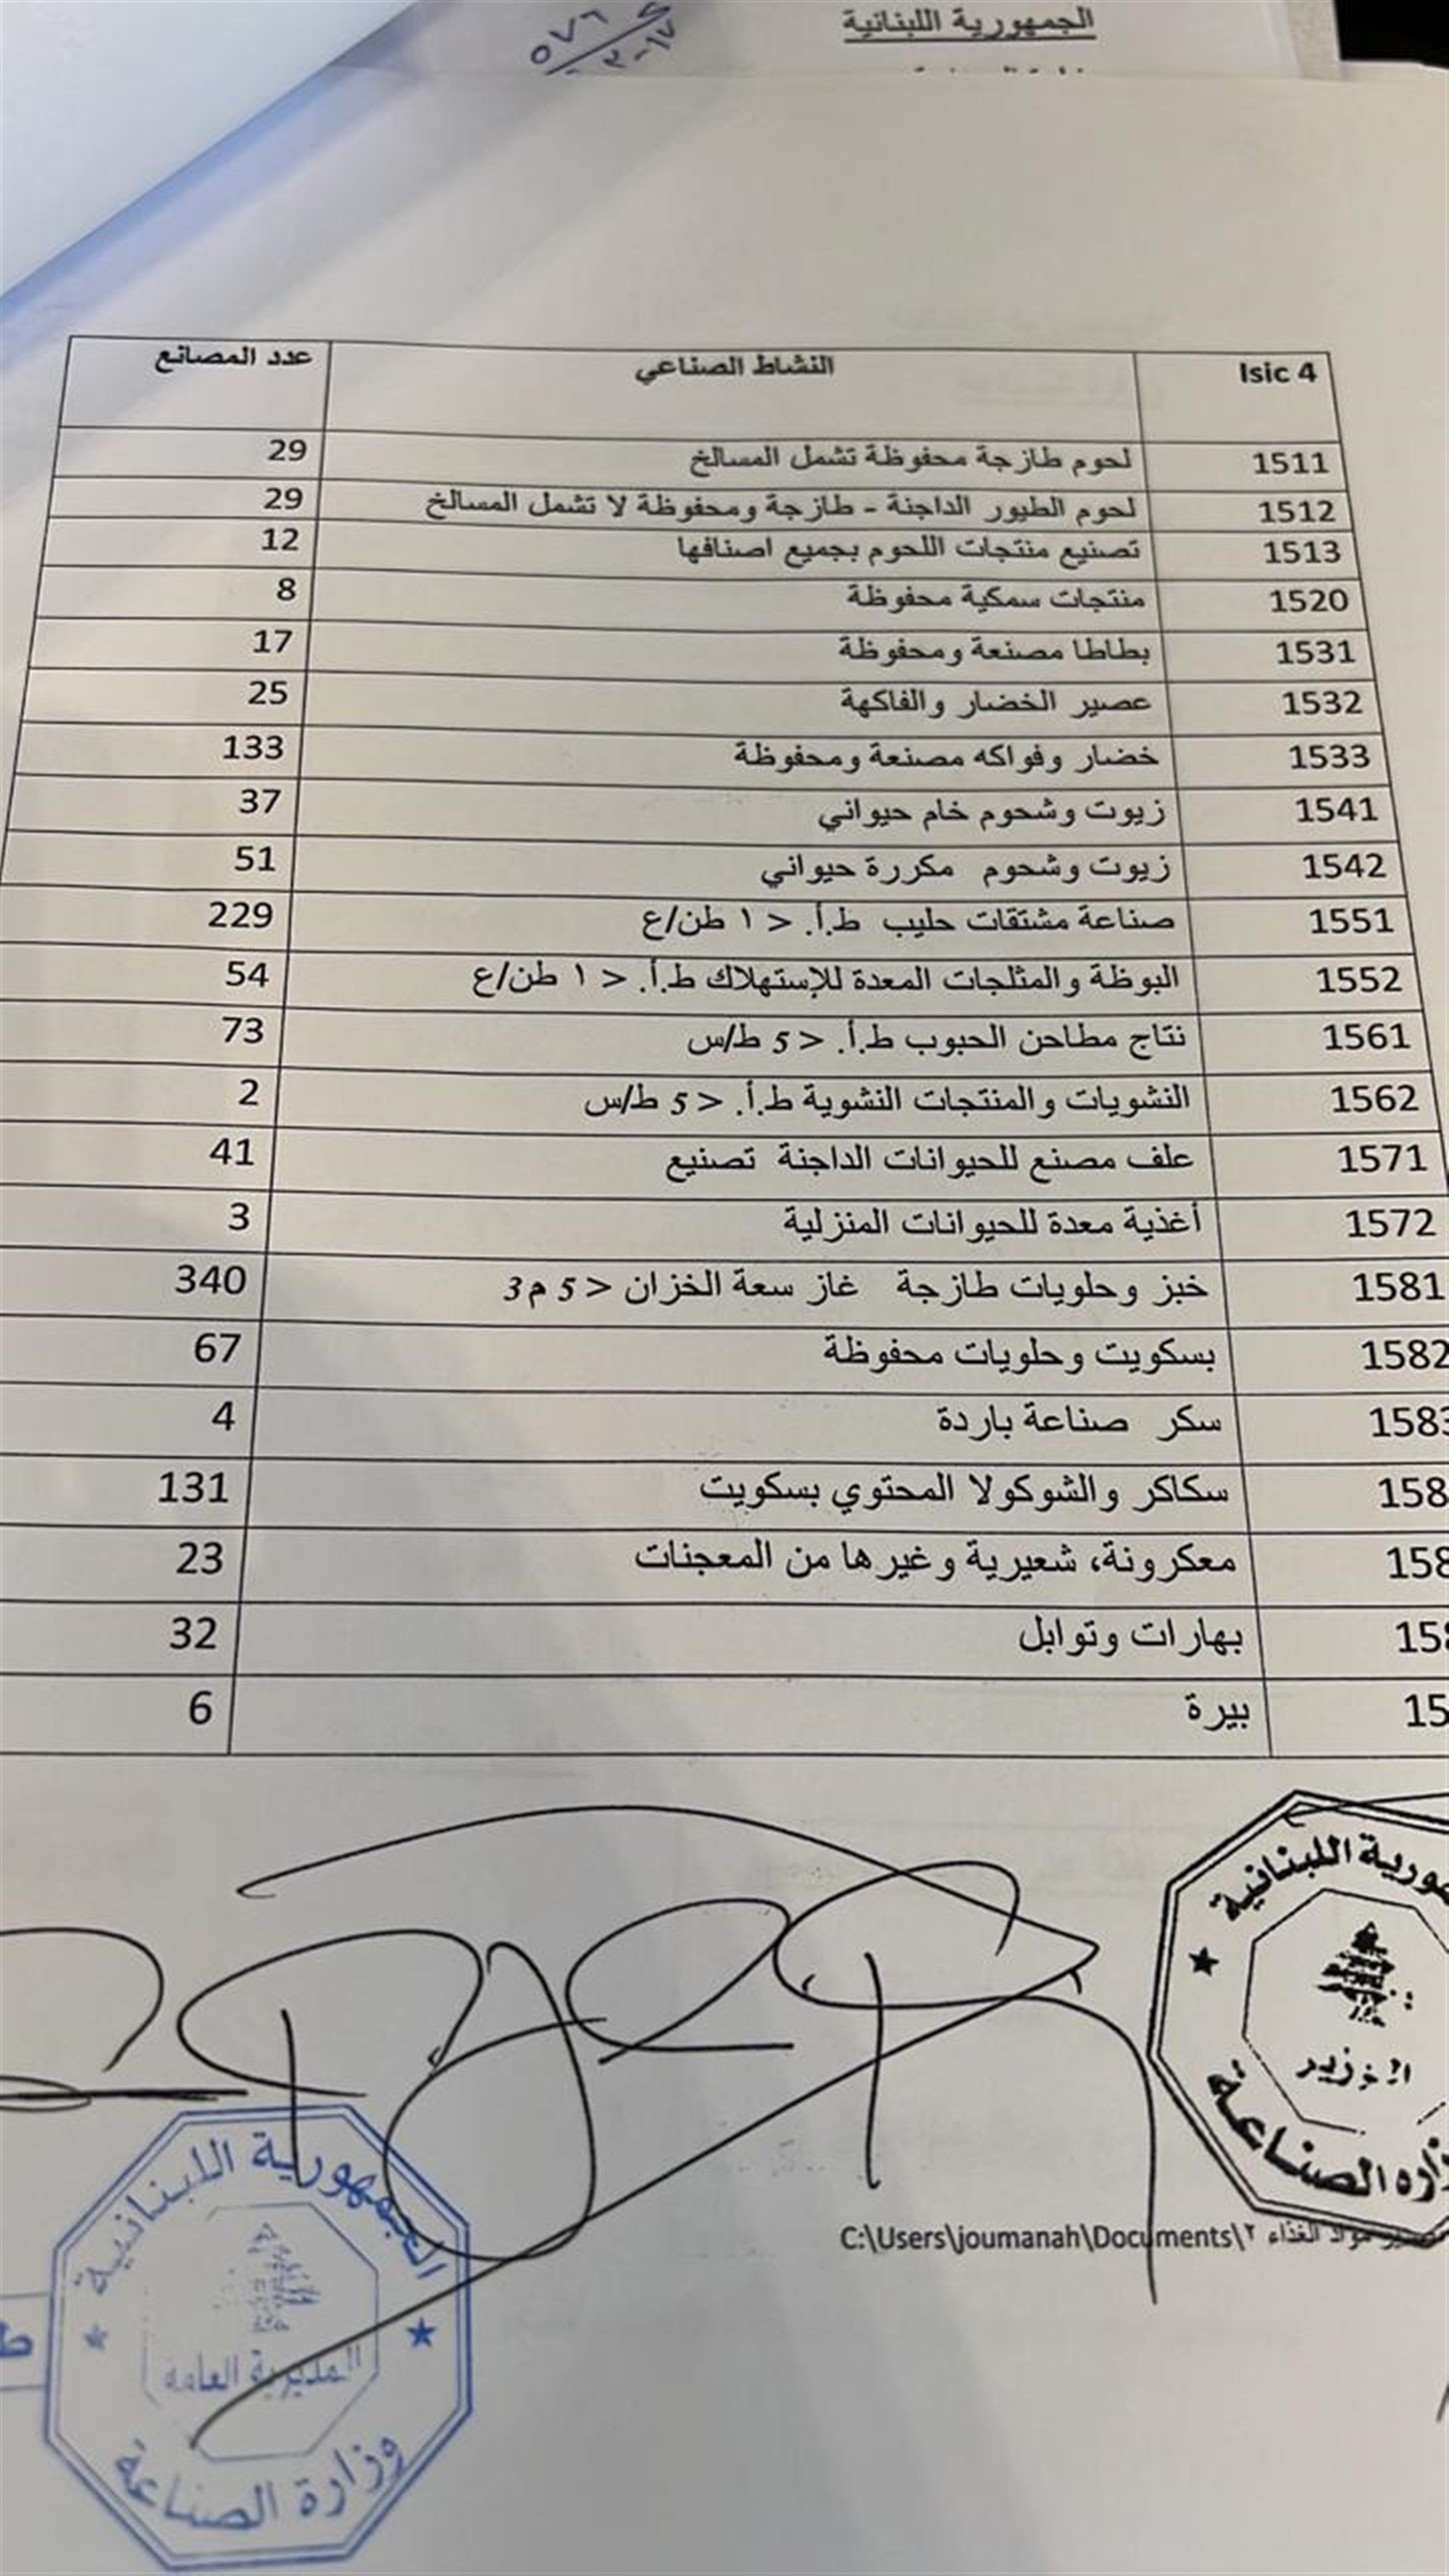 الجمهورية اللبنانية
Isic 4 النشاط الصناعي عدد المصانع
1511 لحوم طازجة محفوظة تشمل المسالخ 29
1512 لحوم الطيور الداجنة - طازجة ومحفوظة لا تشمل المسالخ 29
1513 تصنيع منتجات اللحوم بجميع اصنافها 12
1520 منتجات سمكية محفوظة 8
1531 بطاطا مصنعة ومحفوظة 17
1532 عصير الخضار والفاكهة 25
1533 خضار وفواكه مصنعة ومحفوظة 133
1541 زيوت وشحوم خام حيواني 37
1542 زيوت وشحوم مكررة حيواني 51
1551 صناعة مشتقات حليب ط.أ. < ١ طن/ع 229
1552 البوظة والمثلجات المعدة للإستهلاك ط.أ. < ١ طن/ع 54
1561 نتاج مطاحن الحبوب ط.أ. < 5 ط/س 73
1562 النشويات والمنتجات النشوية ط.أ. < 5 ط/س 2
1571 علف مصنع للحيوانات الداجنة تصنيع 41
1572 أغذية معدة للحيوانات المنزلية 3
1581 خبز وحلويات طازجة غاز سعة الخزان < 5 م3 340
1582 بسكويت وحلويات محفوظة 67
1583 سكر صناعة باردة 4
158 سكاكر والشوكولا المحتوي بسكويت 131
158 معكرونة، شعيرية وغيرها من المعجنات 23
158 بهارات وتوابل 32
15 بيرة 6
الجمهورية اللبنانية
الوزير
وزارة الصناعة
C:\Users\joumanah\Documents\٢ مواد الغذاء
الجمهورية اللبنانية
المديرية العامة
وزارة الصناعة